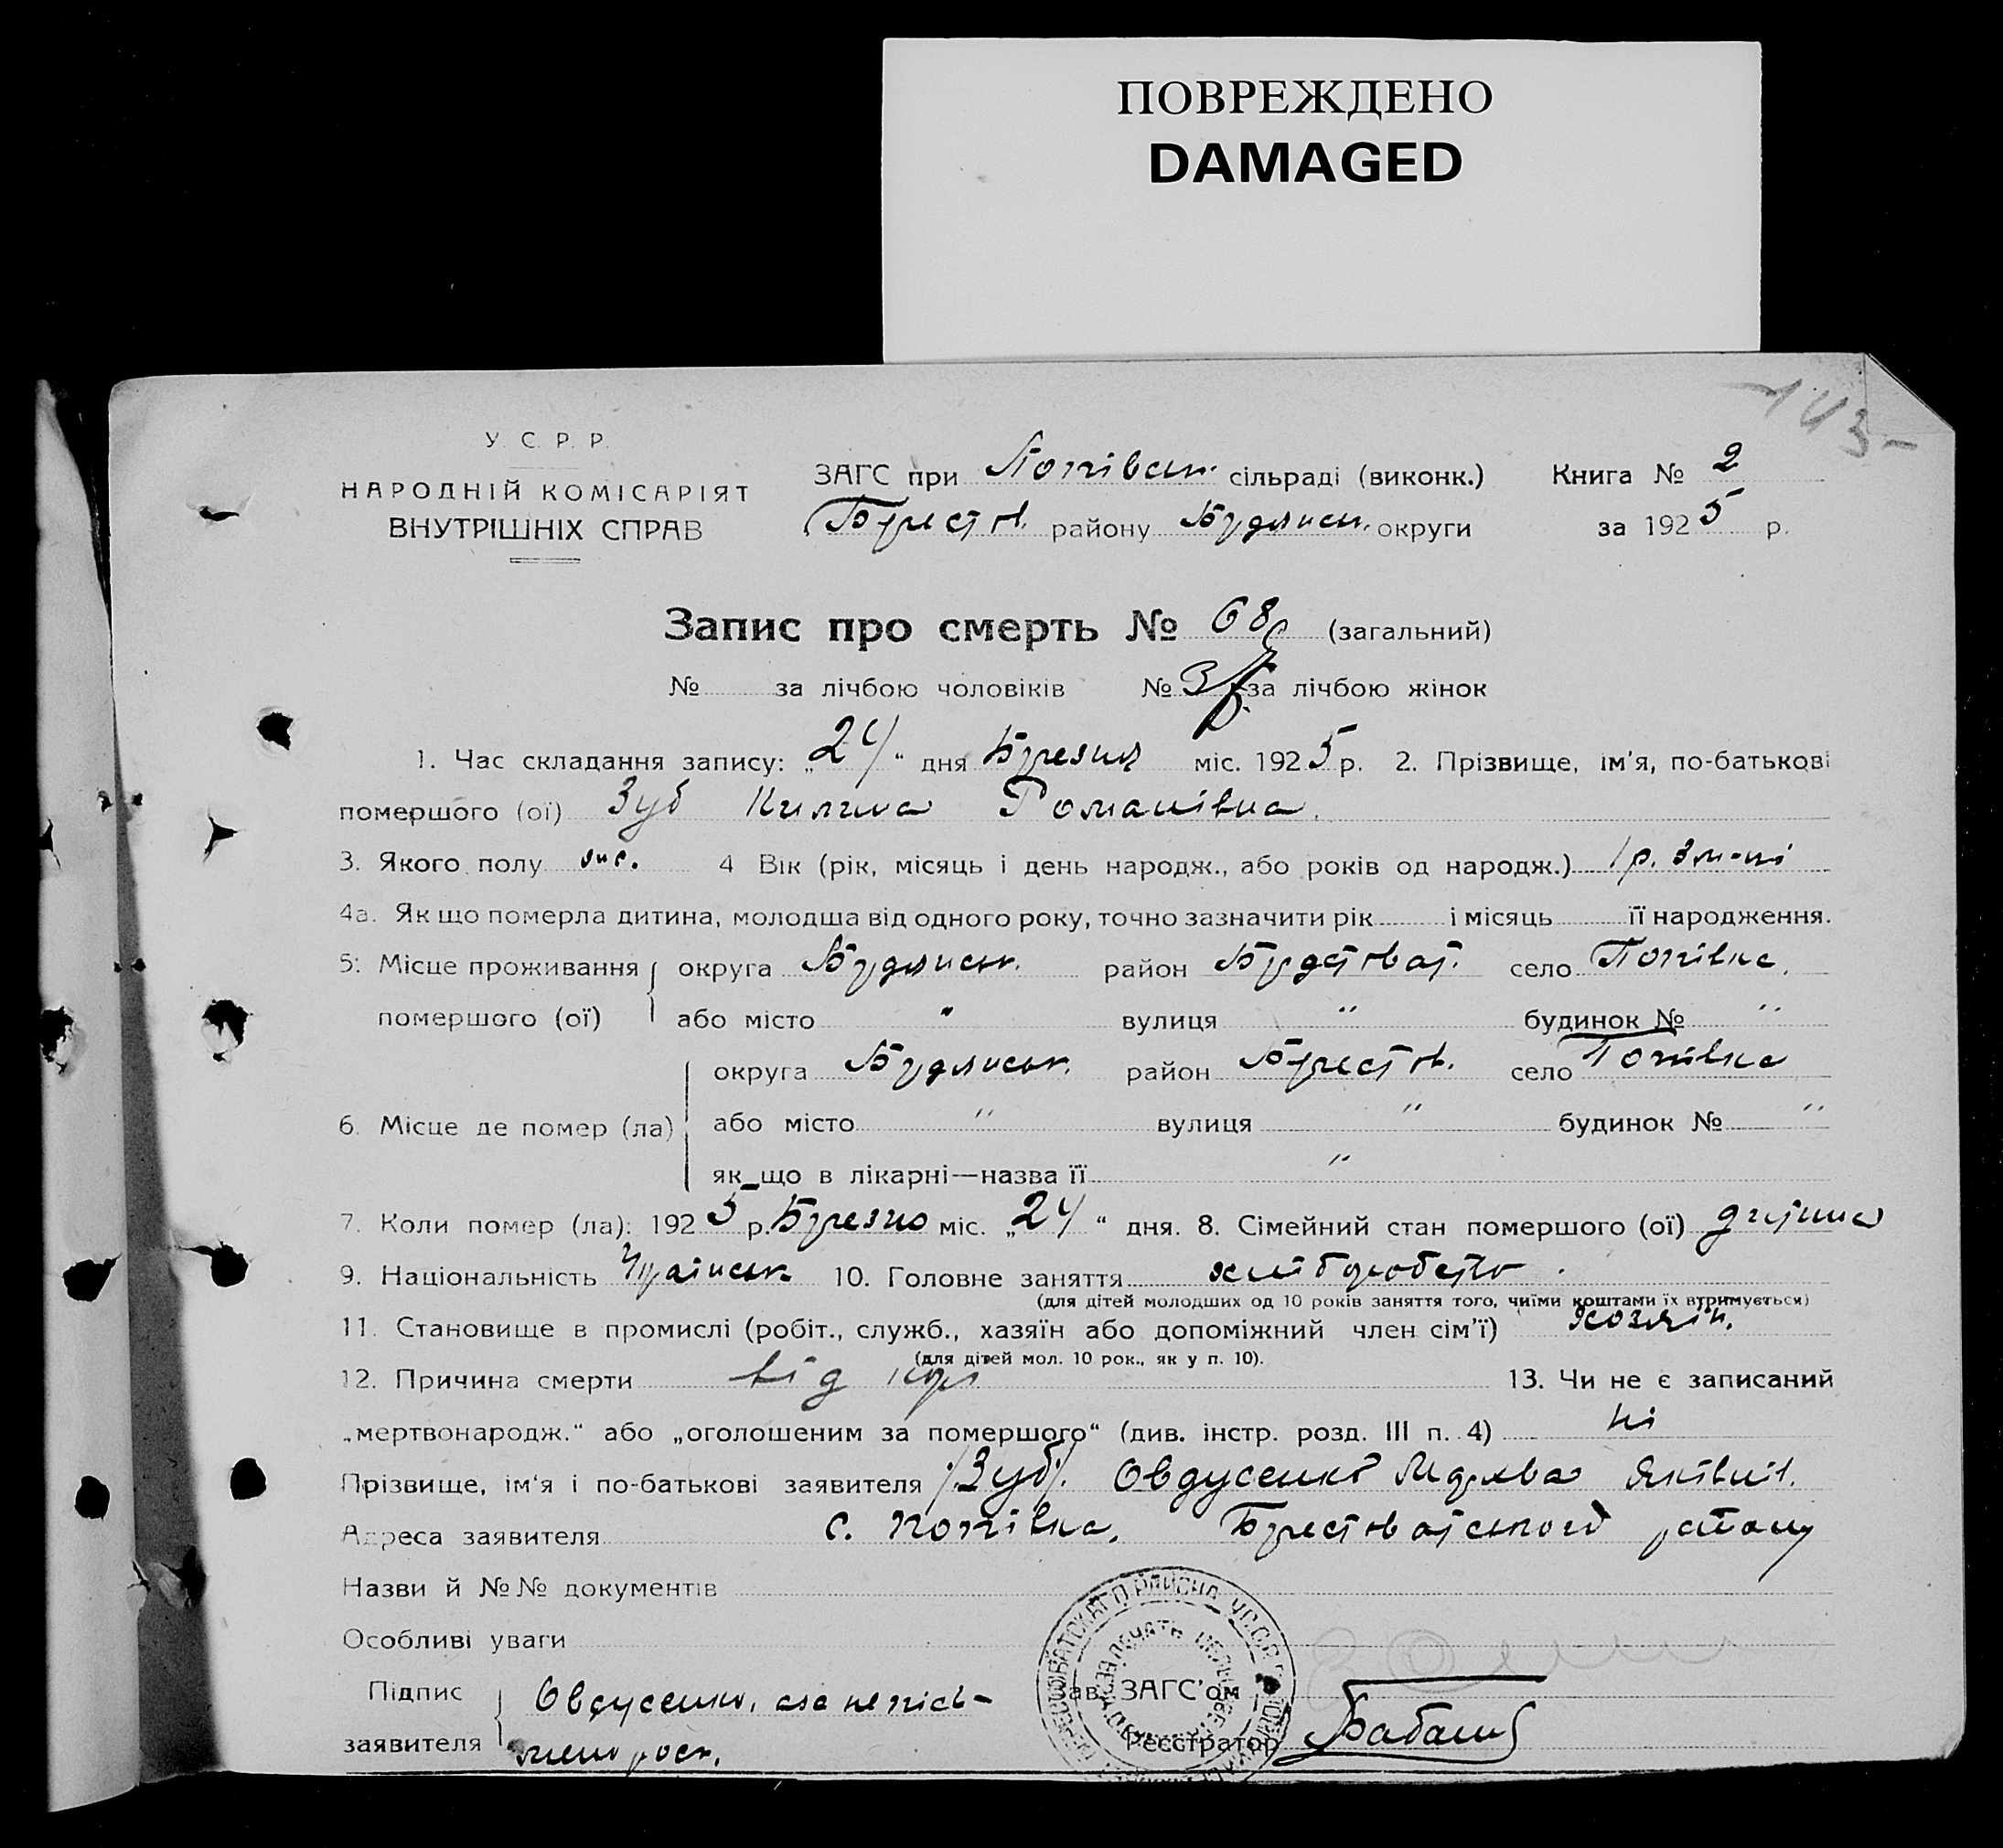 ПОВРЕЖДЕНО
DAMAGED
143-
У. С. Р. Р.
НАРОДНІЙ КОМІСАРІЯТ
ВНУТРІШНІХ СПРАВ
ЗАГС при Попівськ. сільраді (виконк.) Книга № 2
Берестов. району Бердянськ. округи за 1925 р.
Запис про смерть № 68 (загальний)
№ за лічбою чоловіків № за лічбою жінок
1. Час складання запису: „24“ дня Березня міс. 1925 р. 2. Прізвище, ім'я, по-батькові
помершого (ої) Зуб Килина Романівна.
3. Якого полу жін. 4 Вік (рік, місяць і день народж., або років од народж.) 1 р. 3 м-ці
4а. Як що померла дитина, молодша від одного року, точно зазначити рік і місяць її народження.
5. Місце проживання помершого (ої) округа Бердянськ. район село Попівка.
або місто " вулиця " будинок № "
6. Місце де помер (ла) округа Бердянськ. район Берестов. село Попівка
або місто " вулиця " будинок № "
як що в лікарні—назва її "
7. Коли помер (ла): 1925 р. міс. „24“ дня. 8. Сімейний стан помершого (ої) дитина
9. Національність Українськ 10. Головне заняття хліборобство.
(для дітей молодших од 10 років заняття того, чиїми коштами їх втримується)
11. Становище в промислі (робіт., служб., хазяїн або допоміжний член сім'ї) хозяїн.
(для дітей мол. 10 рок., як у п. 10).
12. Причина смерти від кору 13. Чи не є записаний
„мертвонародж.“ або „оголошеним за помершого“ (див. інстр. розд. III п. 4) ні
Прізвище, ім'я і по-батькові заявителя /Зуб/. Овдусенко Яківна.
Адреса заявителя с. Попівка, Берестоватського району
Назви й №№ документів
Особливі уваги
Підпис заявителя Овдусенко, а за неписьменного росп.
Зав. ЗАГС'ом
Реєстратор